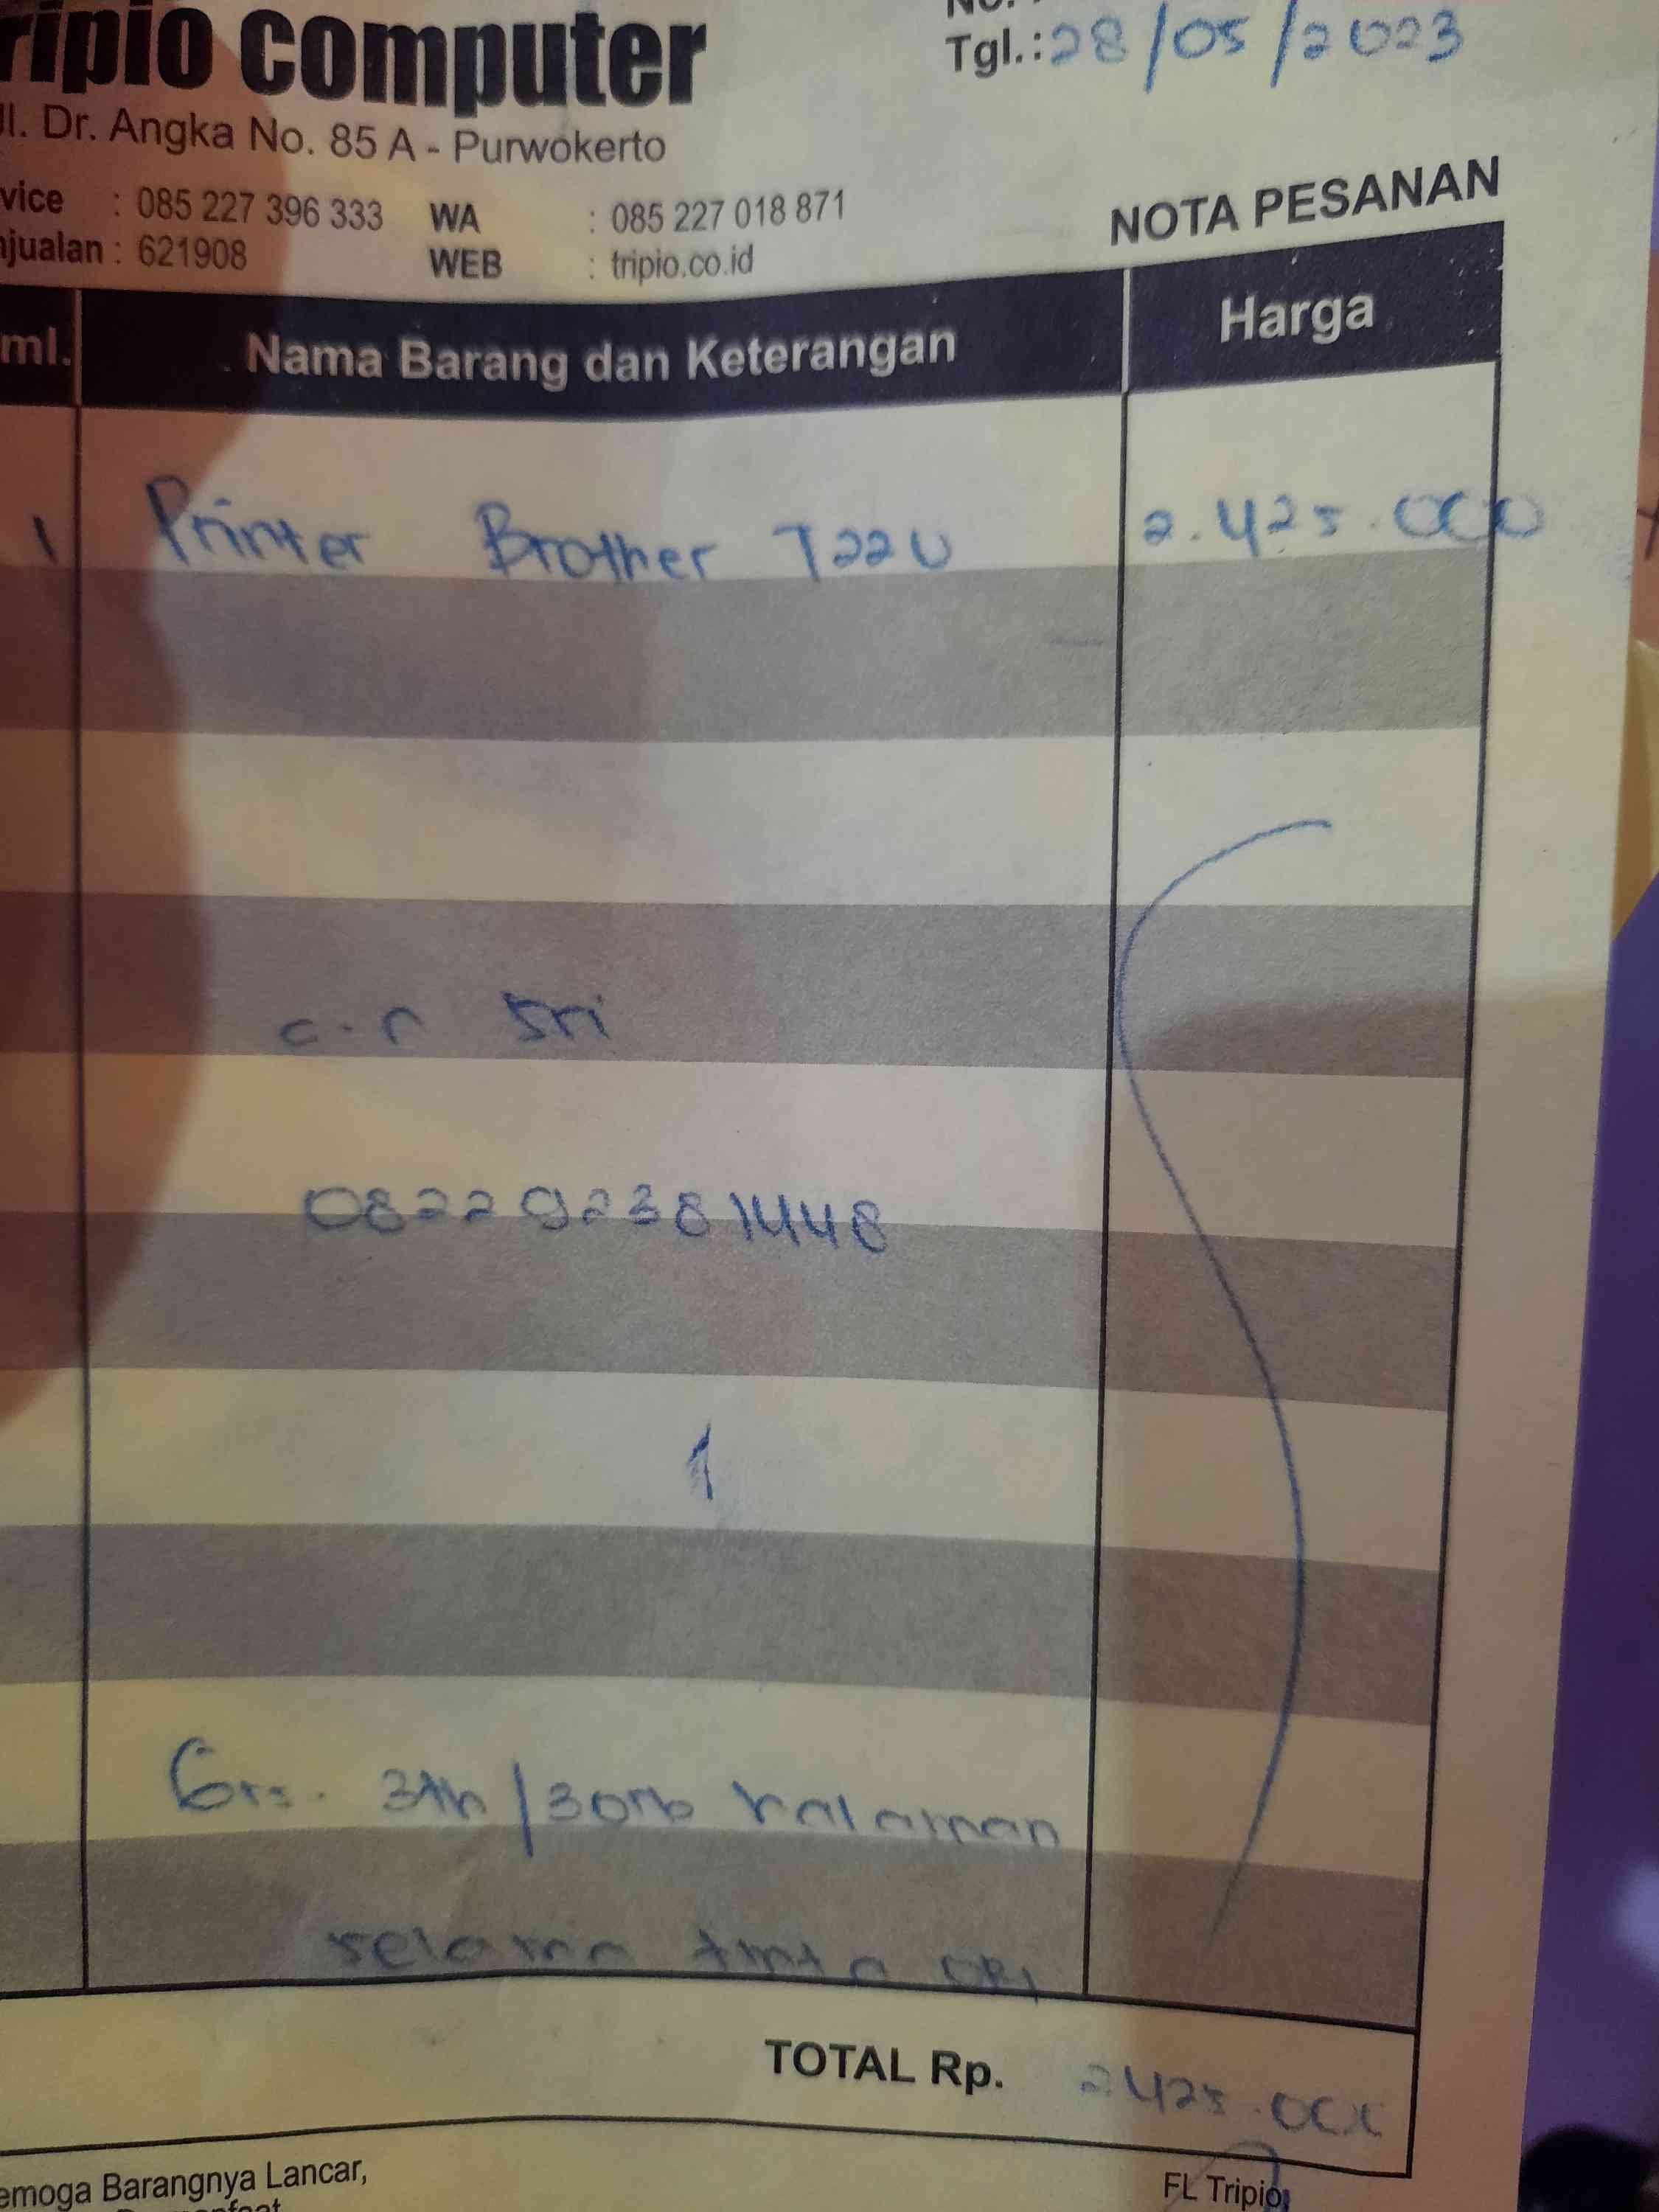 ripio computer
Jl. Dr. Angka No. 85 A - Purwokerto
vice : 085 227 396 333 WA : 085 227 018 871
njualan : 621908 WEB : tripio.co.id
No.
Tgl.: 28/05/2023
NOTA PESANAN
ml. Nama Barang dan Keterangan Harga
1 Printer Brother T220 2.425.000
c.p Sri
082292381448
Grs. 3th/30rb halaman
selama tinta ORI
TOTAL Rp. 2.425.000
emoga Barangnya Lancar,
FL Tripio